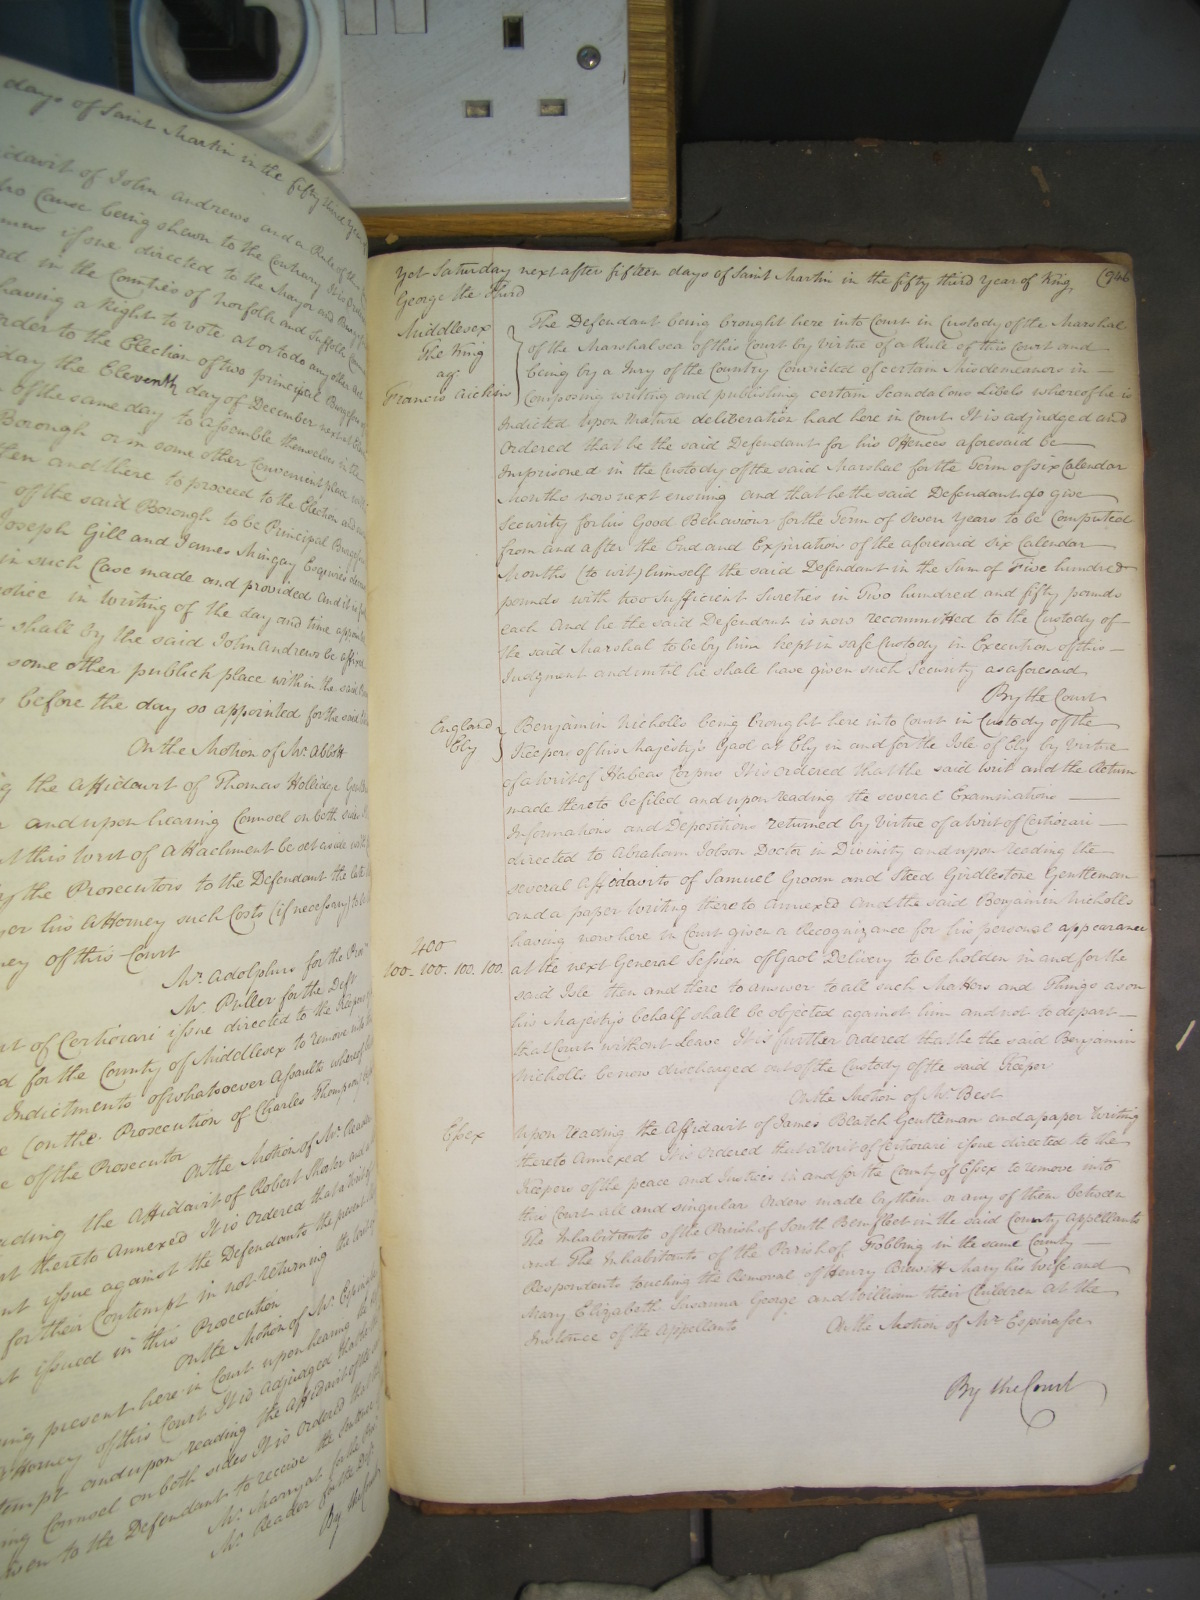 days of Saint Martin in the fifty third Year
idavit of John Andrews and a Rule of the
no Cause being shewn to the Contrary It is
issue directed to the Mayor and
in the Counties of Norfolk and Suffolk
having a Right to vote at or to do any other act
order to the Election of two principal Burgesses
day the Eleventh day of December next
of the same day to assemble themselves in the
Borough or in some other Convenient place
then and there to proceed to the Election and
of the said Borough to be Principal Burgesses
Joseph Gill and James Mingay Esquires
in such Case made and provided and it is
notice in writing of the day and time appointed
shall by the said John Andrews be affixed
some other publick place within the said
before the day so appointed for the said
On the Motion of Mr. Abbott
the Affidavit of Thomas Hollidge
and upon hearing Counsel on both sides
this Writ of Attachment be set aside
by the Prosecutors to the Defendant the
or his Attorney such Costs (if necessary) to be
of this Court
Mr. Adolphus for the Pros
Mr. Puller for the Deft
of Certiorari issue directed to the Keepers
for the County of Middlesex to remove into
Indictments of whatsoever Assaults whereof
(on the Prosecution of Charles Thompson
of the Prosecutor
On the Motion of Mr.
reading the Affidavit of Robert Shorter and
thereto Annexed It is Ordered that a Writ of
issue against the Defendants the
for their Contempt in not returning the
issued in this Prosecution
On the Motion of Mr. Espinasse
being present here in Court upon hearing the
Attorney of this Court It is adjudged that the
and upon reading the Affidavit of the
Counsel on both sides It is Ordered that
to the Defendant to receive the
Mr. Marryat for the Pros
Mr. Reader for the Deft
By the Court
Yet Saturday next after fifteen days of Saint Martin in the fifty third Year of King (946
George the Third
Middlesex
The King
agt.
Francis Aicken
The Defendant being brought here into Court in Custody of the Marshal
of the Marshalsea of this Court by virtue of a Rule of this Court and
being by a Jury of the Country Convicted of certain Misdemeanors in
Composing writing and publishing certain Scandalous Libels whereof he is
Indicted Upon mature deliberation had here in Court It is adjudged and
Ordered that he the said Defendant for his Offences aforesaid be
Imprisoned in the Custody of the said Marshal for the Term of six Calendar
Months now next ensuing and that he the said Defendant do give
Security for his Good Behaviour for the Term of Seven Years to be Computed
from and after the End and Expiration of the aforesaid six Calendar
Months (to wit) himself the said Defendant in the Sum of Five hundred
pounds with two Sufficient Sureties in Two hundred and fifty pounds
each And he the said Defendant is now recommitted to the Custody of
the said Marshal to be by him kept in safe Custody in Execution of this
Judgment and until he shall have given such Security as aforesaid
By the Court
England
Ely
Benjamin Nicholls being brought here into Court in Custody of the
Keeper of his Majesty's Gaol at Ely in and for the Isle of Ely by Virtue
of a Writ of Habeas Corpus It is ordered that the said Writ and the Return
made thereto be filed and upon reading the several Examinations
Informations and Depositions returned by Virtue of a Writ of Certiorari
directed to Abraham Jobson Doctor in Divinity and upon reading the
several Affidavits of Samuel Groom and Steed Girdlestone Gentleman
and a paper Writing thereto annexed And the said Benjamin Nicholls
having now here in Court given a Recognizance for his personal appearance
400
100. 100. 100. 100.
at the next General Session of Gaol Delivery to be holden in and for the
said Isle then and there to answer to all such Matters and Things as on
his Majesty's behalf shall be objected against him and not to depart
that Court without Leave It is further ordered that the said Benjamin
Nicholls be now discharged out of the Custody of the said Keeper
On the Motion of Mr. Best
Essex
Upon reading the Affidavit of James Blatch Gentleman and a paper Writing
thereto Annexed It is Ordered that a Writ of Certiorari issue directed to the
Keepers of the peace and Justices in and for the County of Essex to remove into
this Court all and singular Orders made by them or any of them between
The Inhabitants of the Parish of South Bemfleet in the said County Appellants
and The Inhabitants of the Parish of Fobbing in the same County
Respondents touching the Removal of Henry Brewitt Mary his Wife and
Mary Elizabeth Susanna George and William their Children at the
Instance of the Appellants
On the Motion of Mr. Espinasse
By the Court